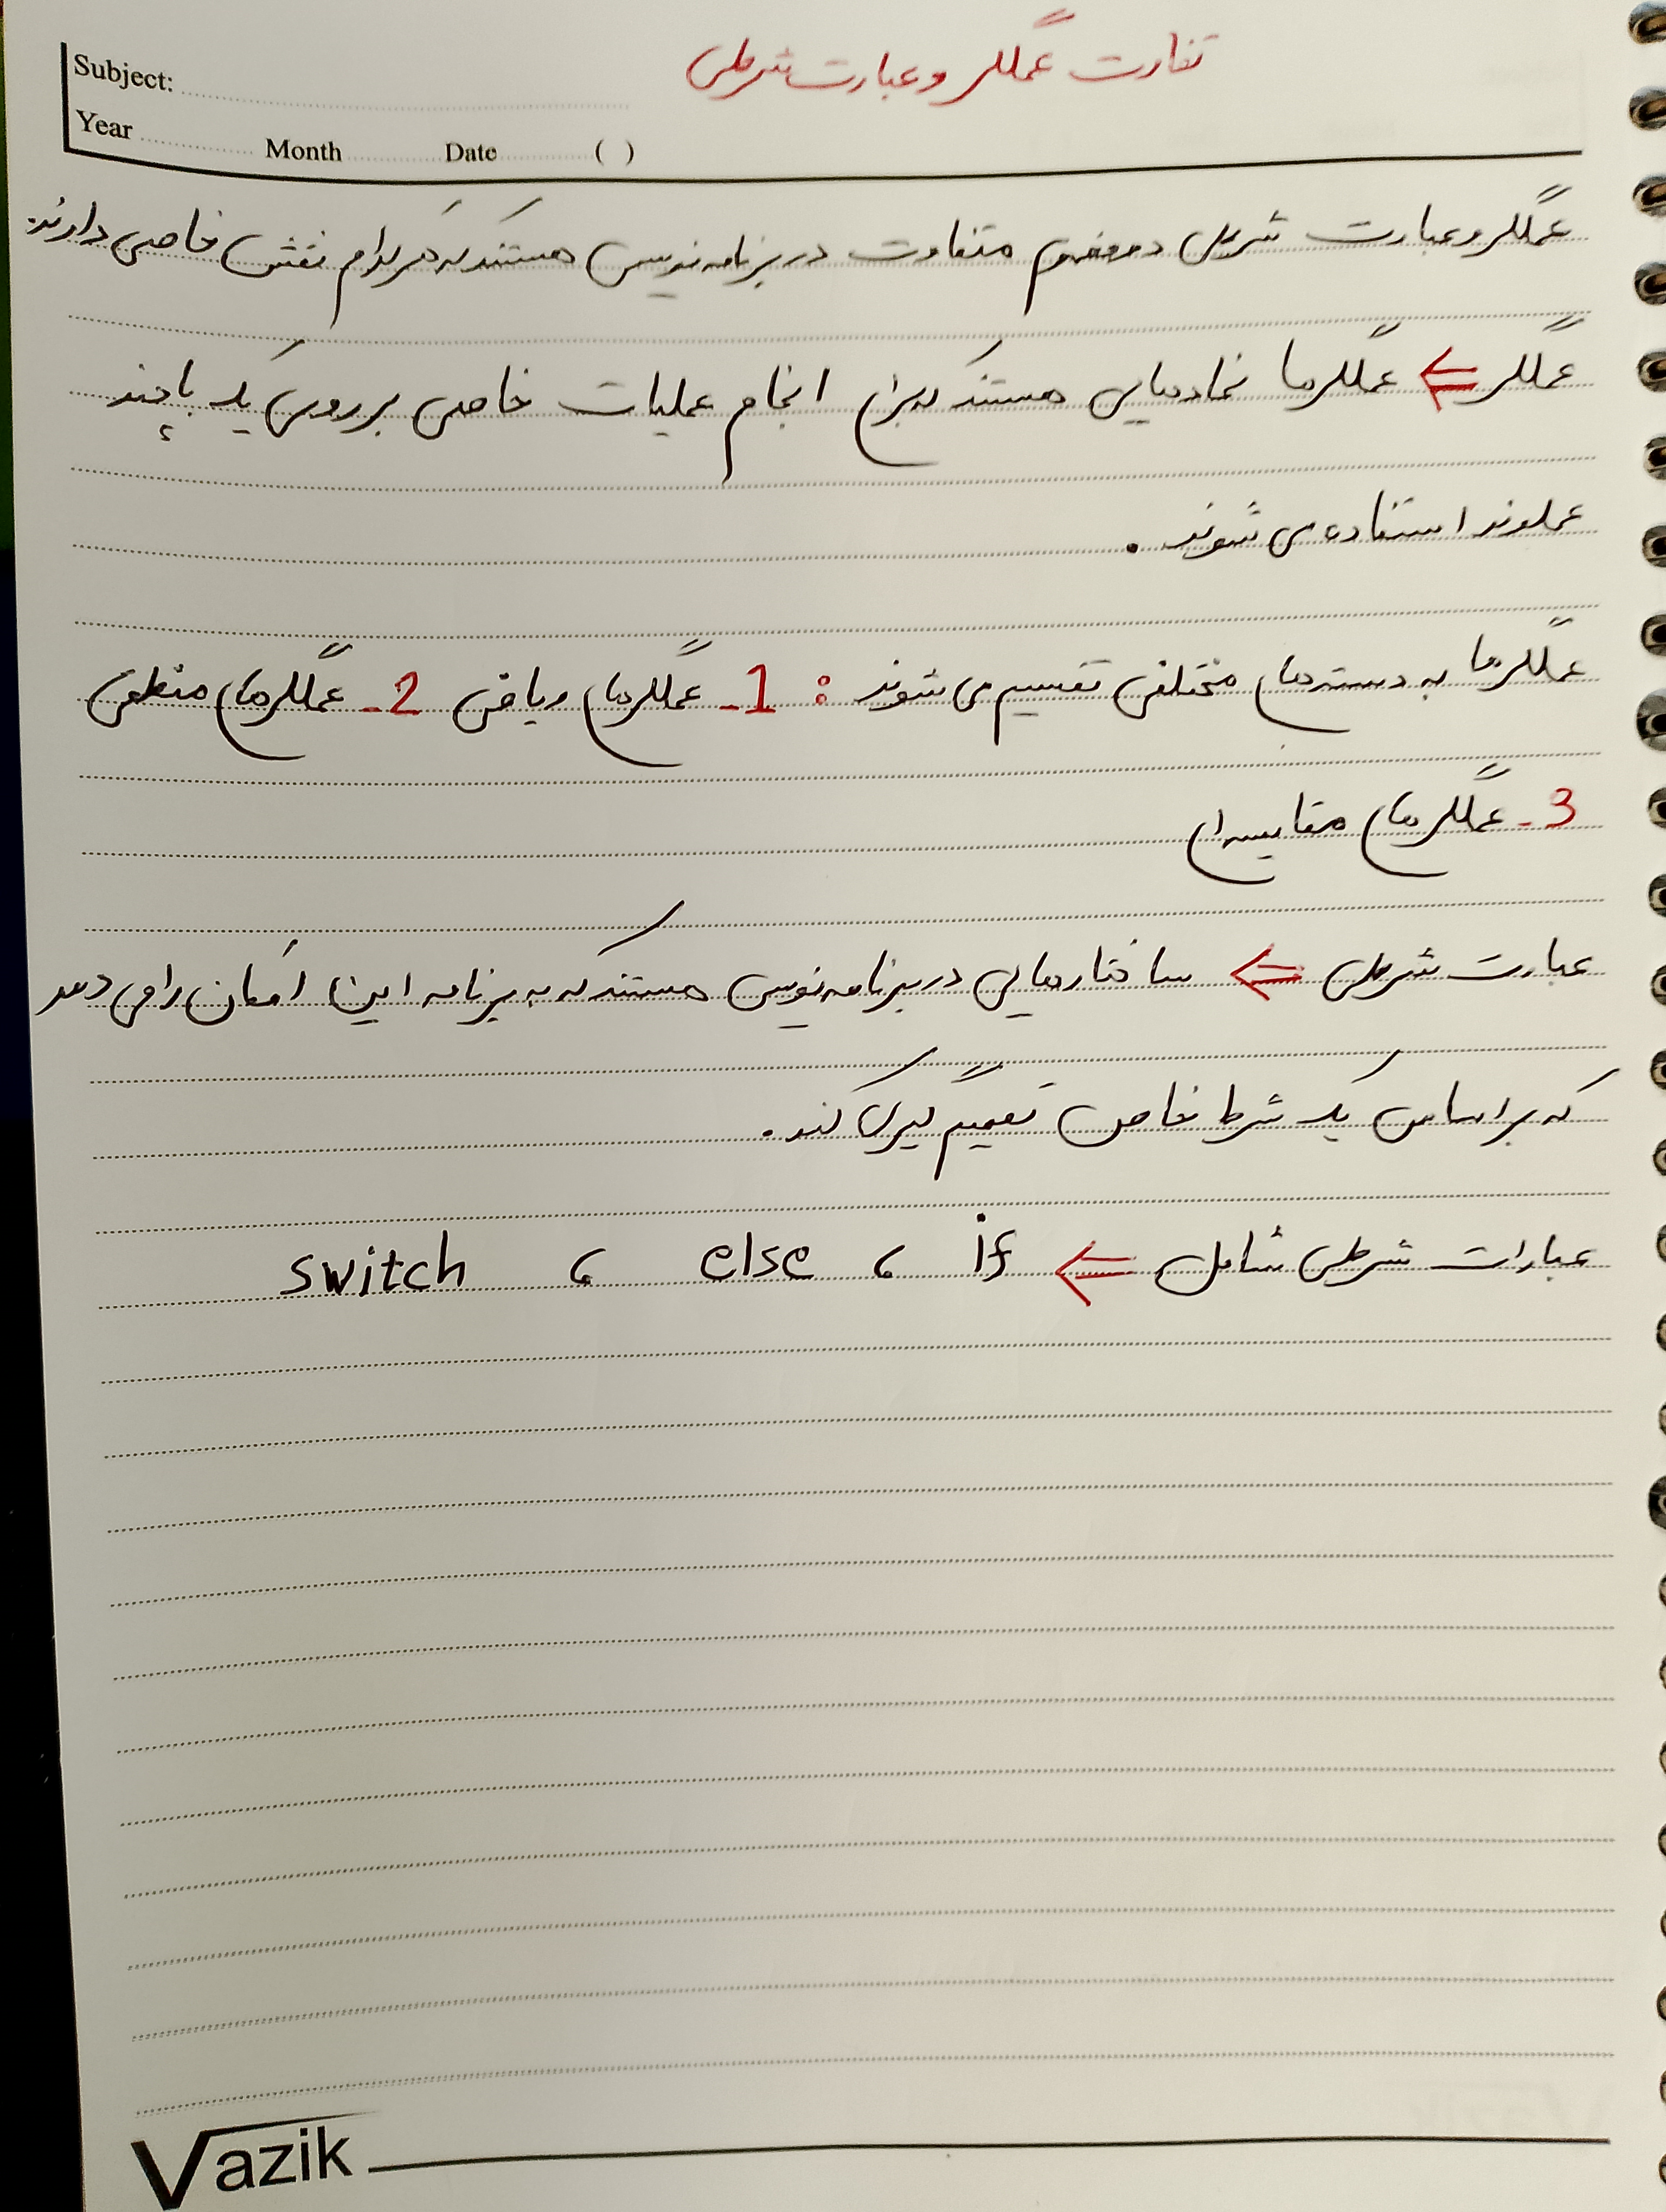 تفاوت عملگر و عبارت شرطی
Subject:
Year Month Date ( )
عملگر و عبارت شرطی دو مفهوم متفاوت در برنامه نویسی هستند که هر کدام نقش خاصی دارند.
عملگر ⇐ عملگرها نمادهایی هستند که برای انجام عملیات خاصی بر روی یک یا چند
عملوند استفاده می شوند .
عملگرها به دسته های مختلفی تقسیم می شوند : 1- عملگرهای ریاضی 2- عملگرهای منطقی
3- عملگرهای مقایسه ای
عبارت شرطی ⇐ ساختارهایی در برنامه نویسی هستند که به برنامه این امکان را می دهد
که بر اساس یک شرط خاص تصمیم گیری کند .
عبارات شرطی شامل ⇐ if ، else ، switch
Vazik